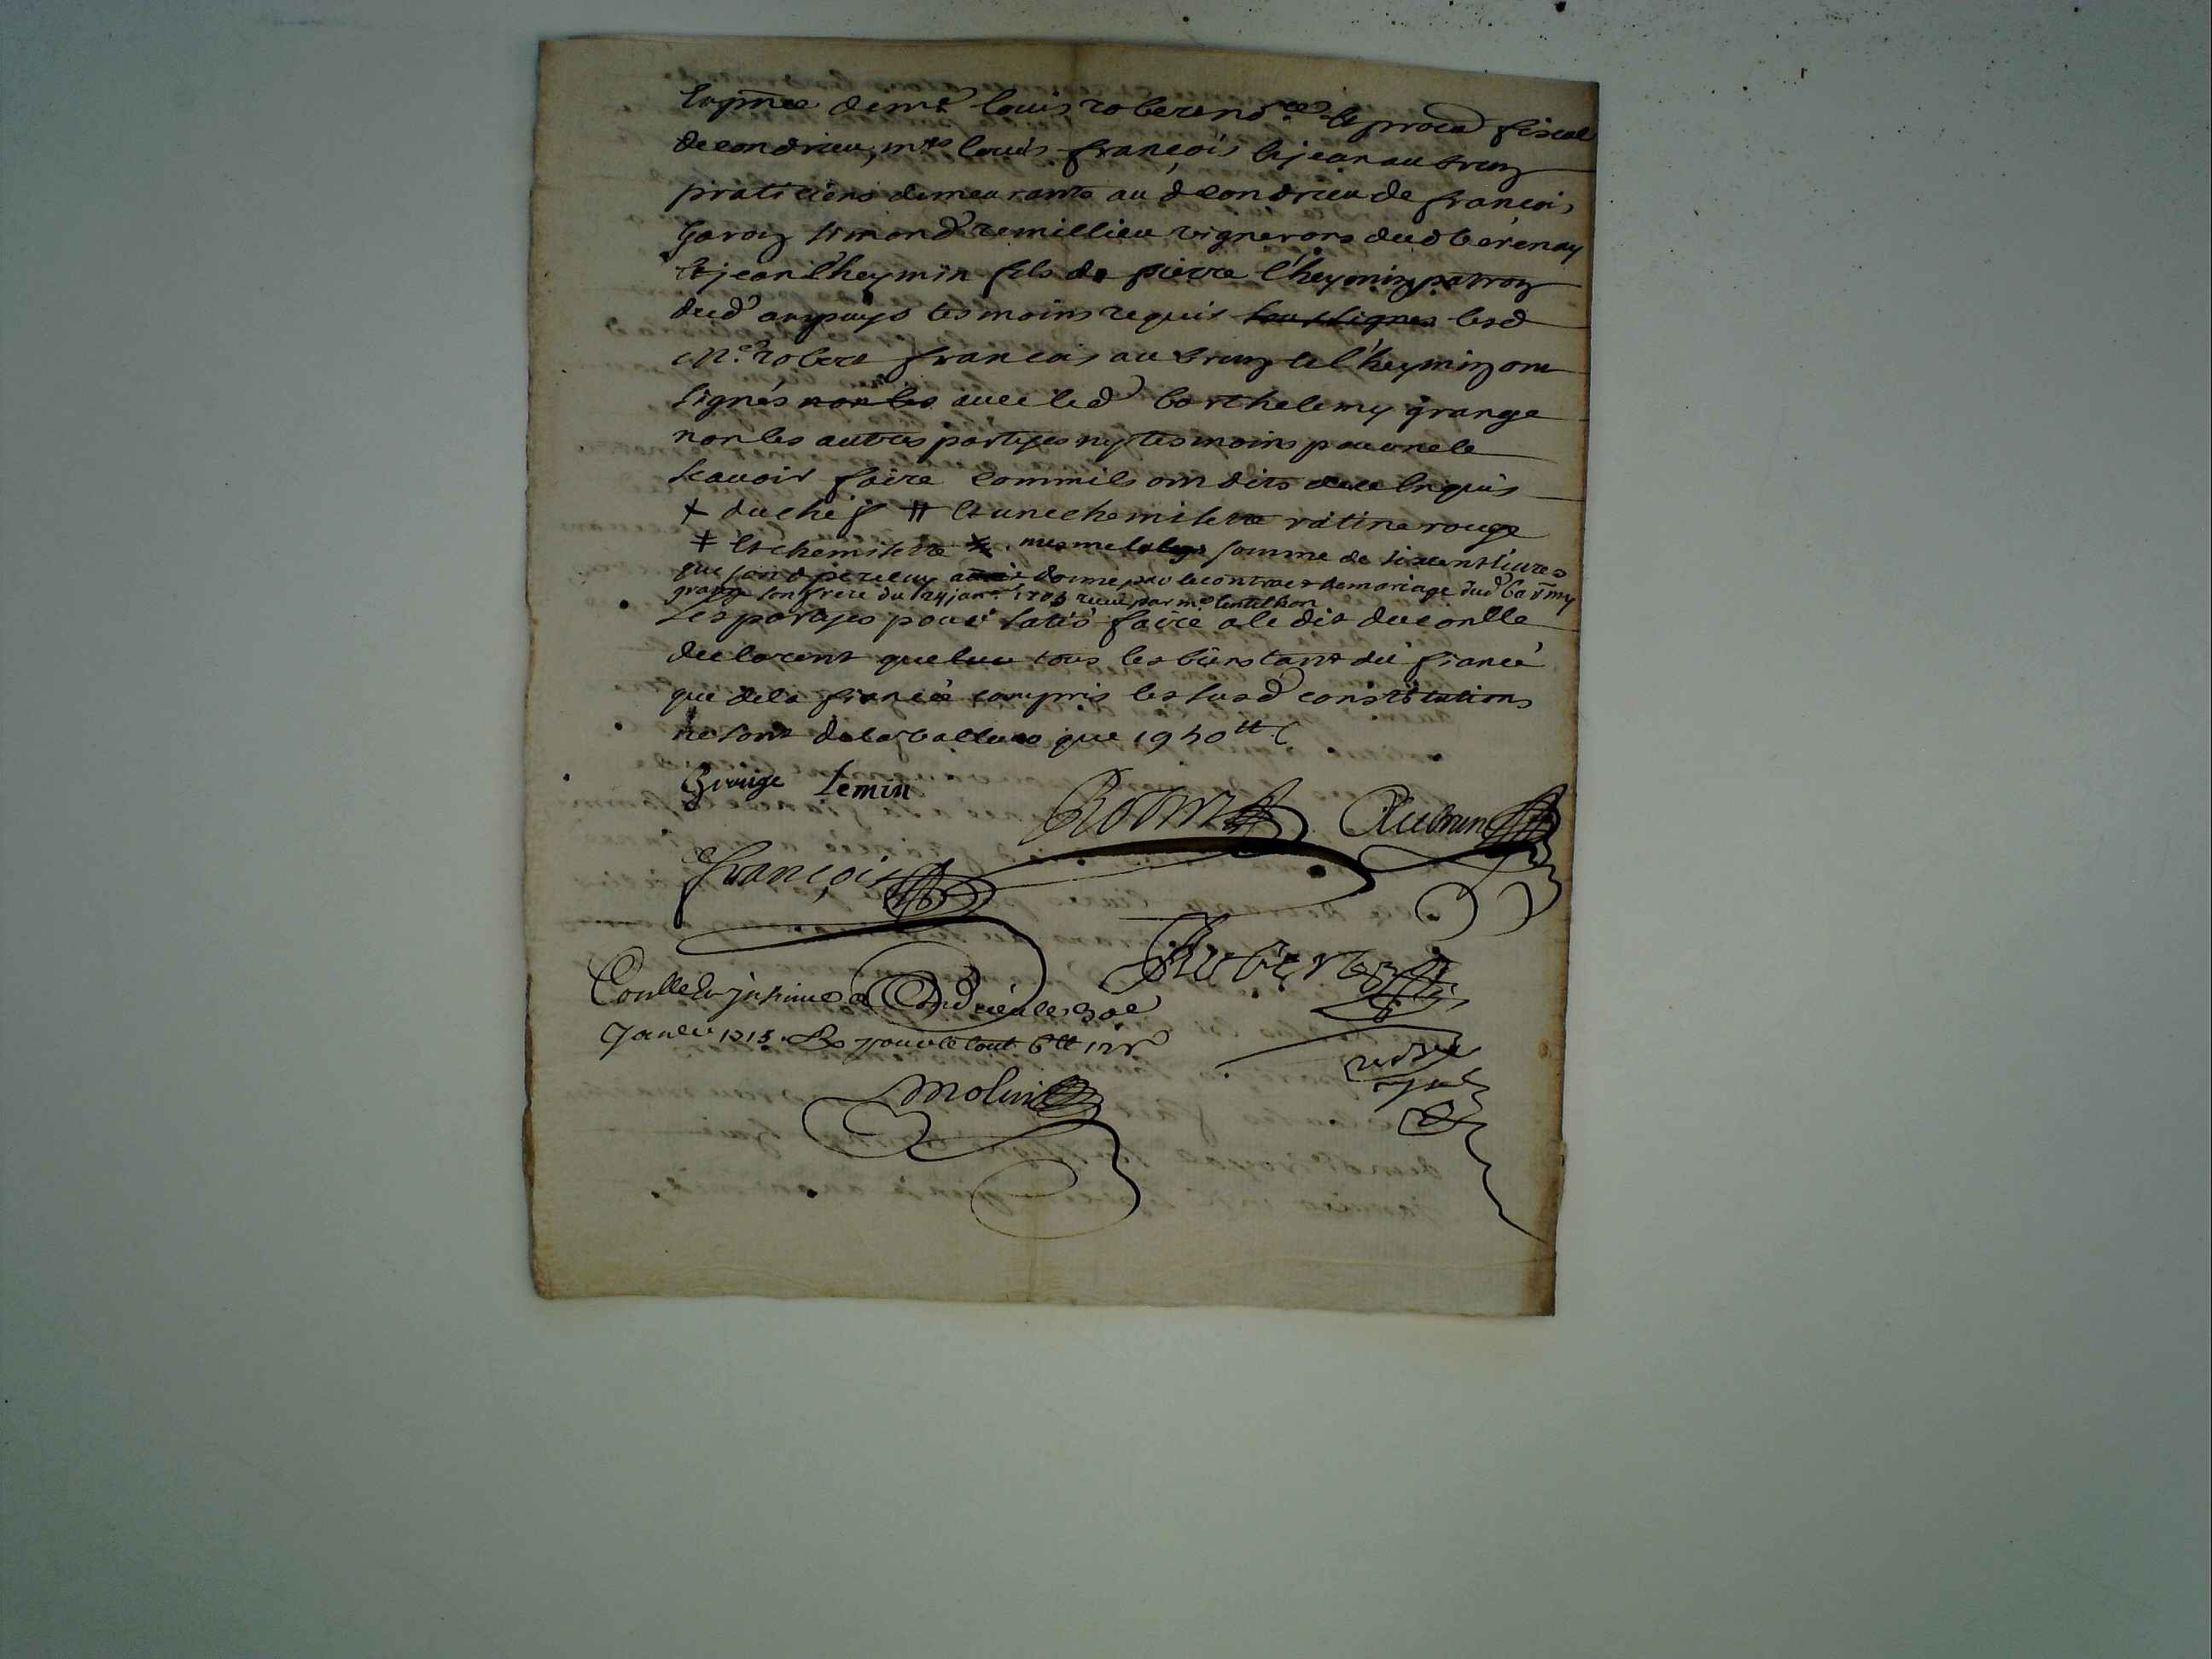 En pñce de me louis robert no.re & procu fiscal
de condrieu, mes louis françois & jean aubrun
praticiens demeurants au d condrieu de francois
Garon simond remillieu vignerons dud verenay
& jean l'heymin fils de pierre l'heymin patron
dud ampuys tesmoins requis soussignes lesd
Me. robert francois aubrun & l'heymin ont
signés non les avec led barthelemy grange
non les autres partyes ny tesmoins pour ne le
scavoir faire comm'ils ont dits de ce enquis
+ du chef # & une chemisette ratine rouge
‡ & chemisette somme de six cent livres
que sond pere luy donné par le contract de mariage dud bartmy
grange son frere du 24 janr. 1705 receu par me lentillon
les partyes pour satisfaire a l'edit du conlle
declarent que tous les biens tant du fiancé
que de la fiancée compris les susd constitutions
ne sont de la valleur que 1950 tt
Grange Lemin
Robert Aubrun
françois
Conllé & jnsinué a Condrieu le 30e
Janvier 1715. R pour le tout 6 tt 12 s
Molin